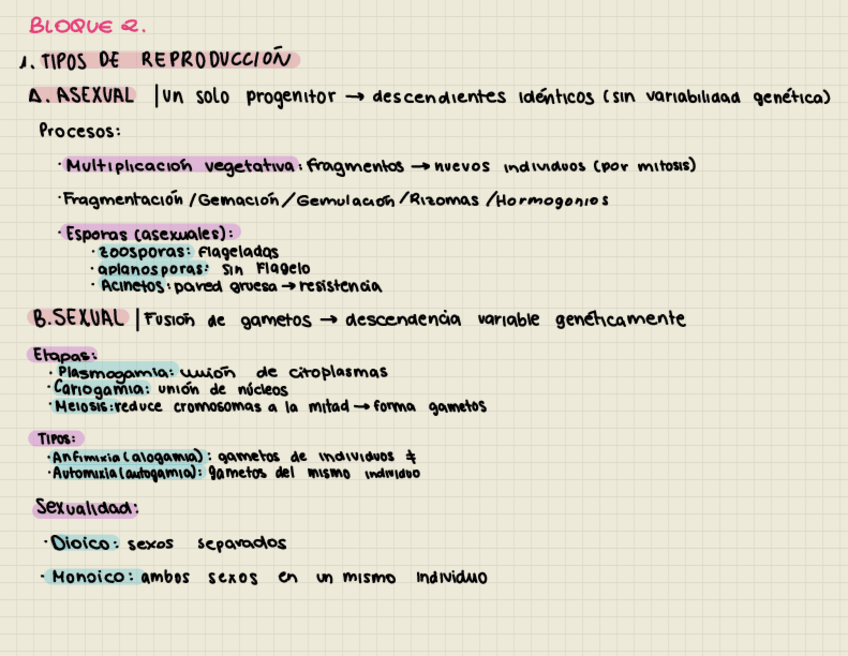 BLOQUE 2.
1. TIPOS DE REPRODUCCIÓN
A. ASEXUAL | un solo progenitor → descendientes idénticos (sin variabilidad genética)
Procesos:
· Multiplicación vegetativa: fragmentos → nuevos individuos (por mitosis)
· Fragmentación / Gemación / Gemulación / Rizomas / Hormogonios
· Esporas (asexuales):
· zoosporas: flageladas
· aplanosporas: sin flagelo
· Acinetos: pared gruesa → resistencia
B. SEXUAL | Fusión de gametos → descendencia variable genéticamente
Etapas:
· Plasmogamia: unión de citoplasmas
· Cariogamia: unión de núcleos
· Meiosis: reduce cromosomas a la mitad → forma gametos
Tipos:
· Anfimixia (alogamia): gametos de individuos ≠
· Automixia (autogamia): gametos del mismo individuo
Sexualidad:
· Dioico: sexos separados
· Monoico: ambos sexos en un mismo individuo